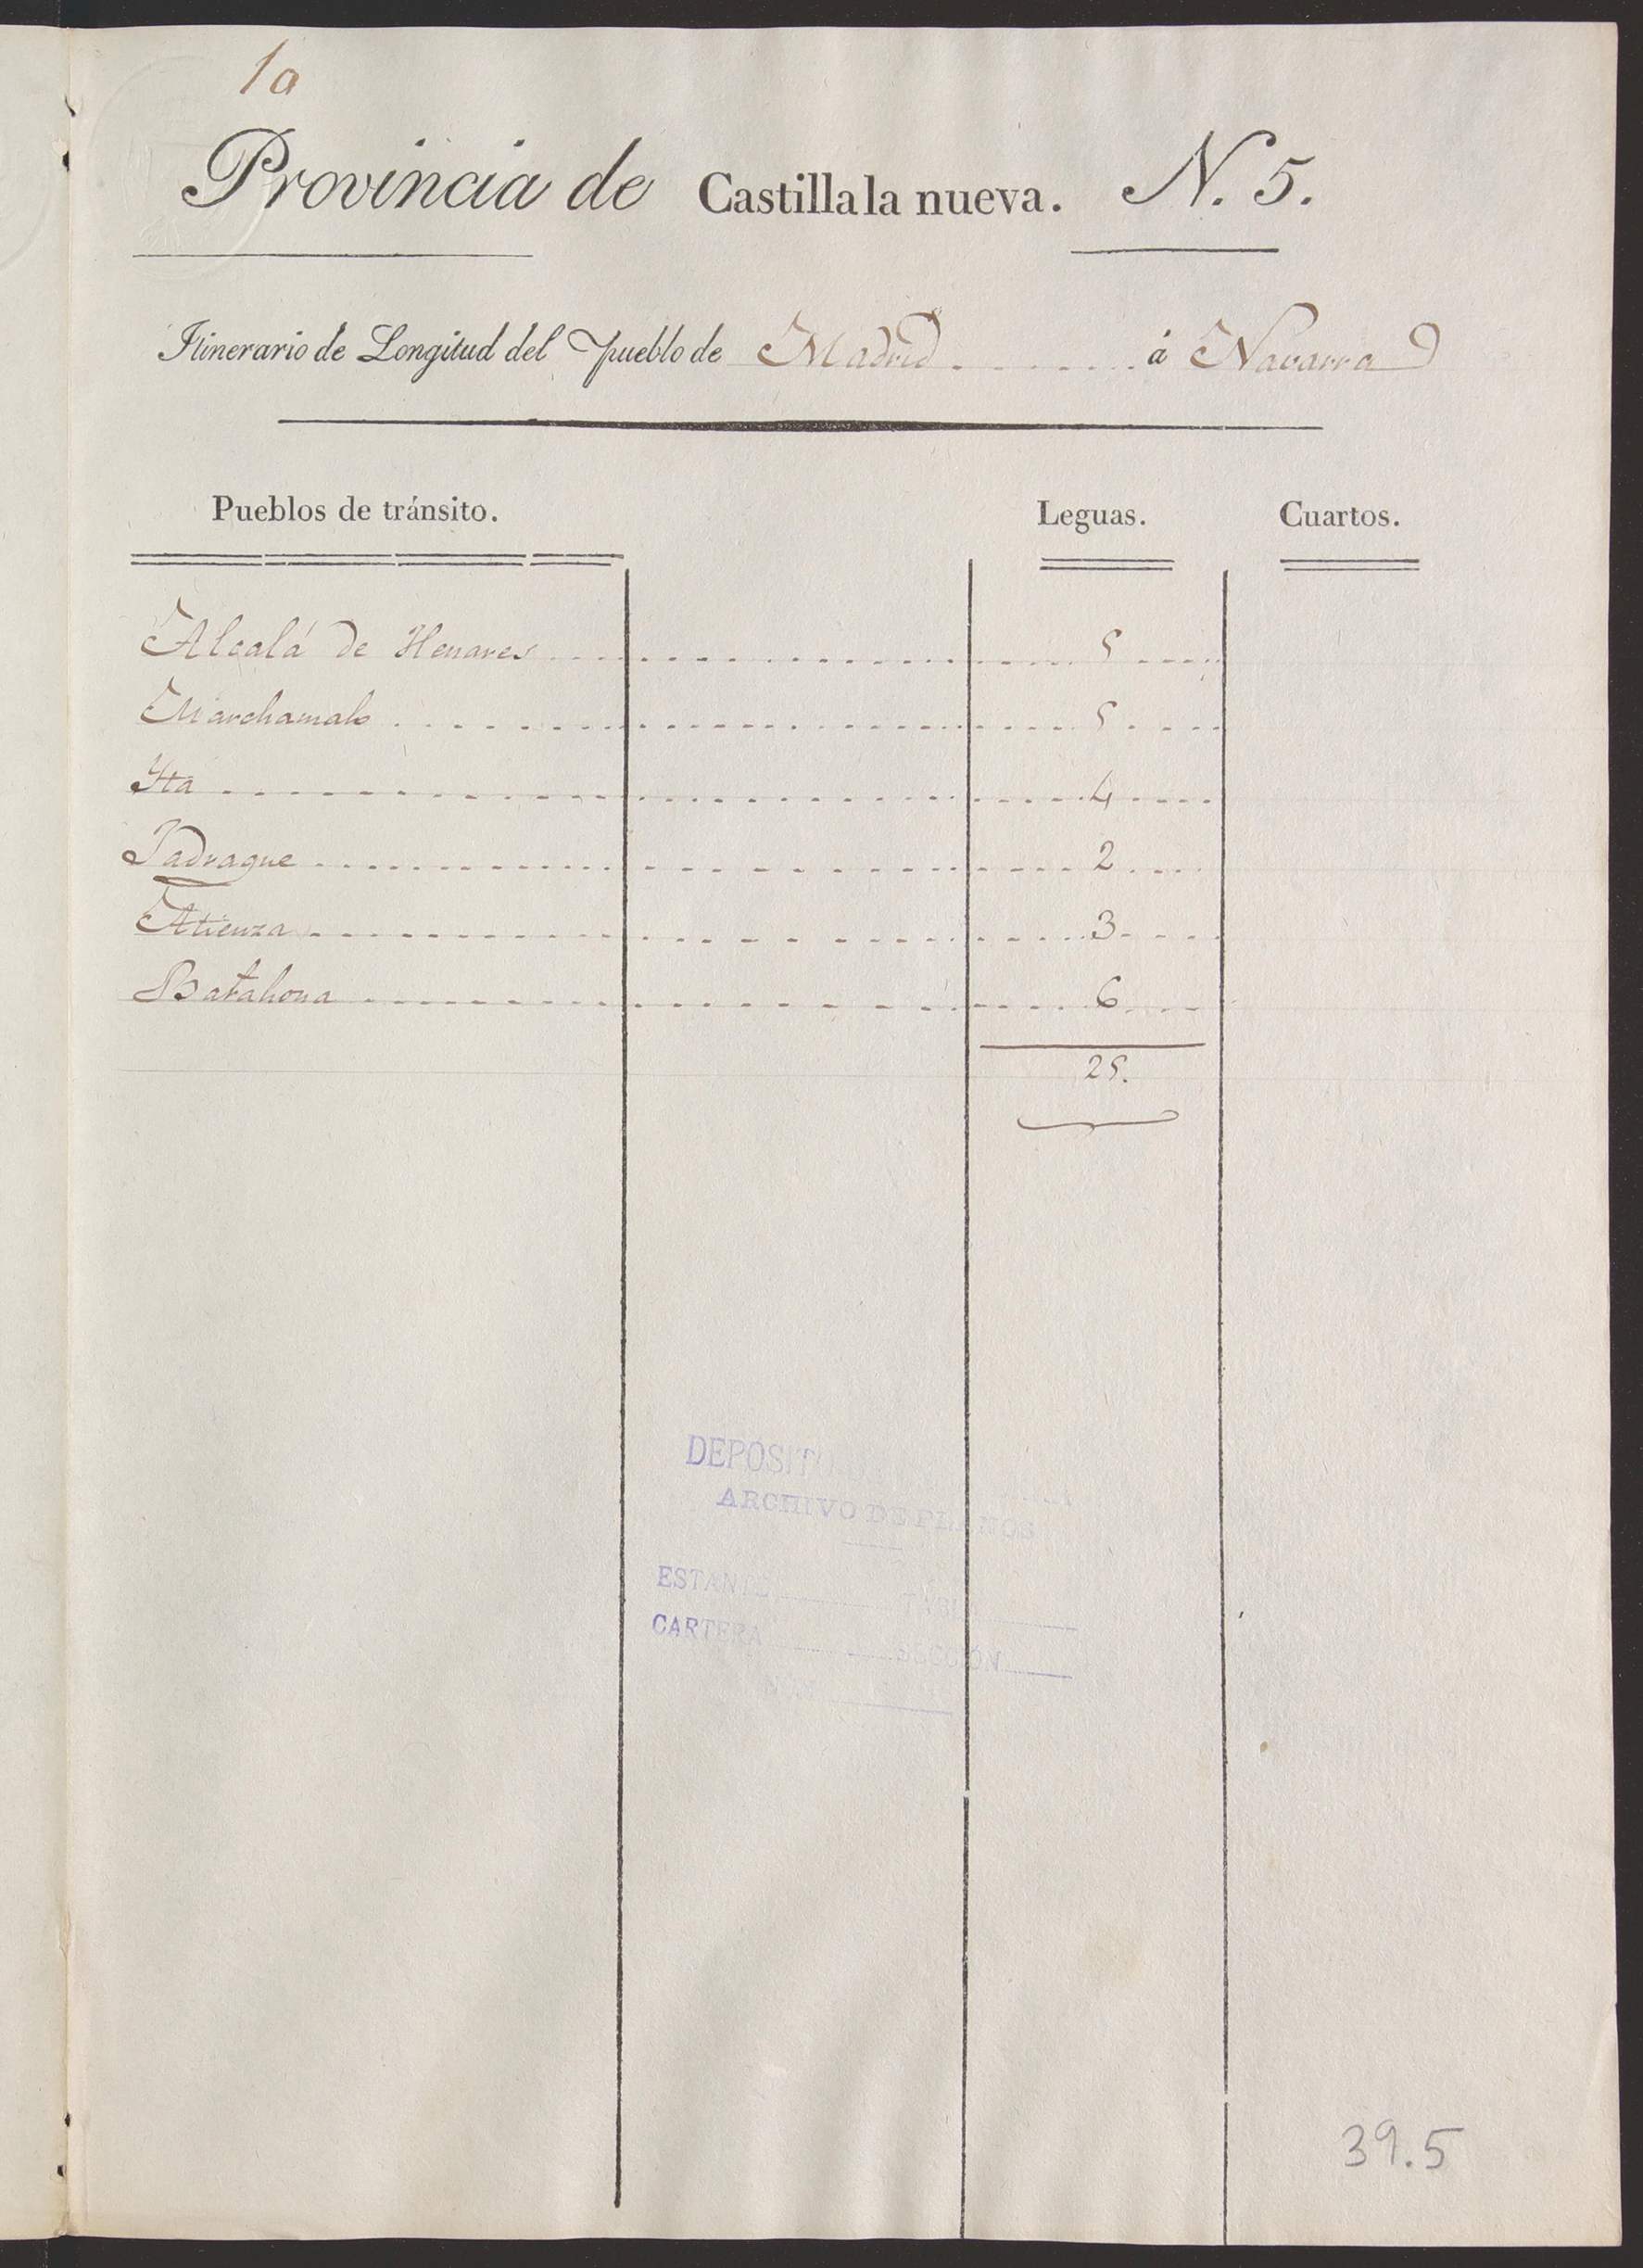 1a
Provincia de Castilla la nueva. N. 5.
Itinerario de Longitud del Pueblo de Madrid ........ á Navarra
Pueblos de tránsito. Leguas. Cuartos.
Alcalá de Henares 5
Marchamalo 5
Yta 4
Jadraque 2
Atienza 3
Batahona 6
25.
DEPOSITO
ARCHIVO DE PLANOS
ESTANTE
CARTERA SECCION
39.5